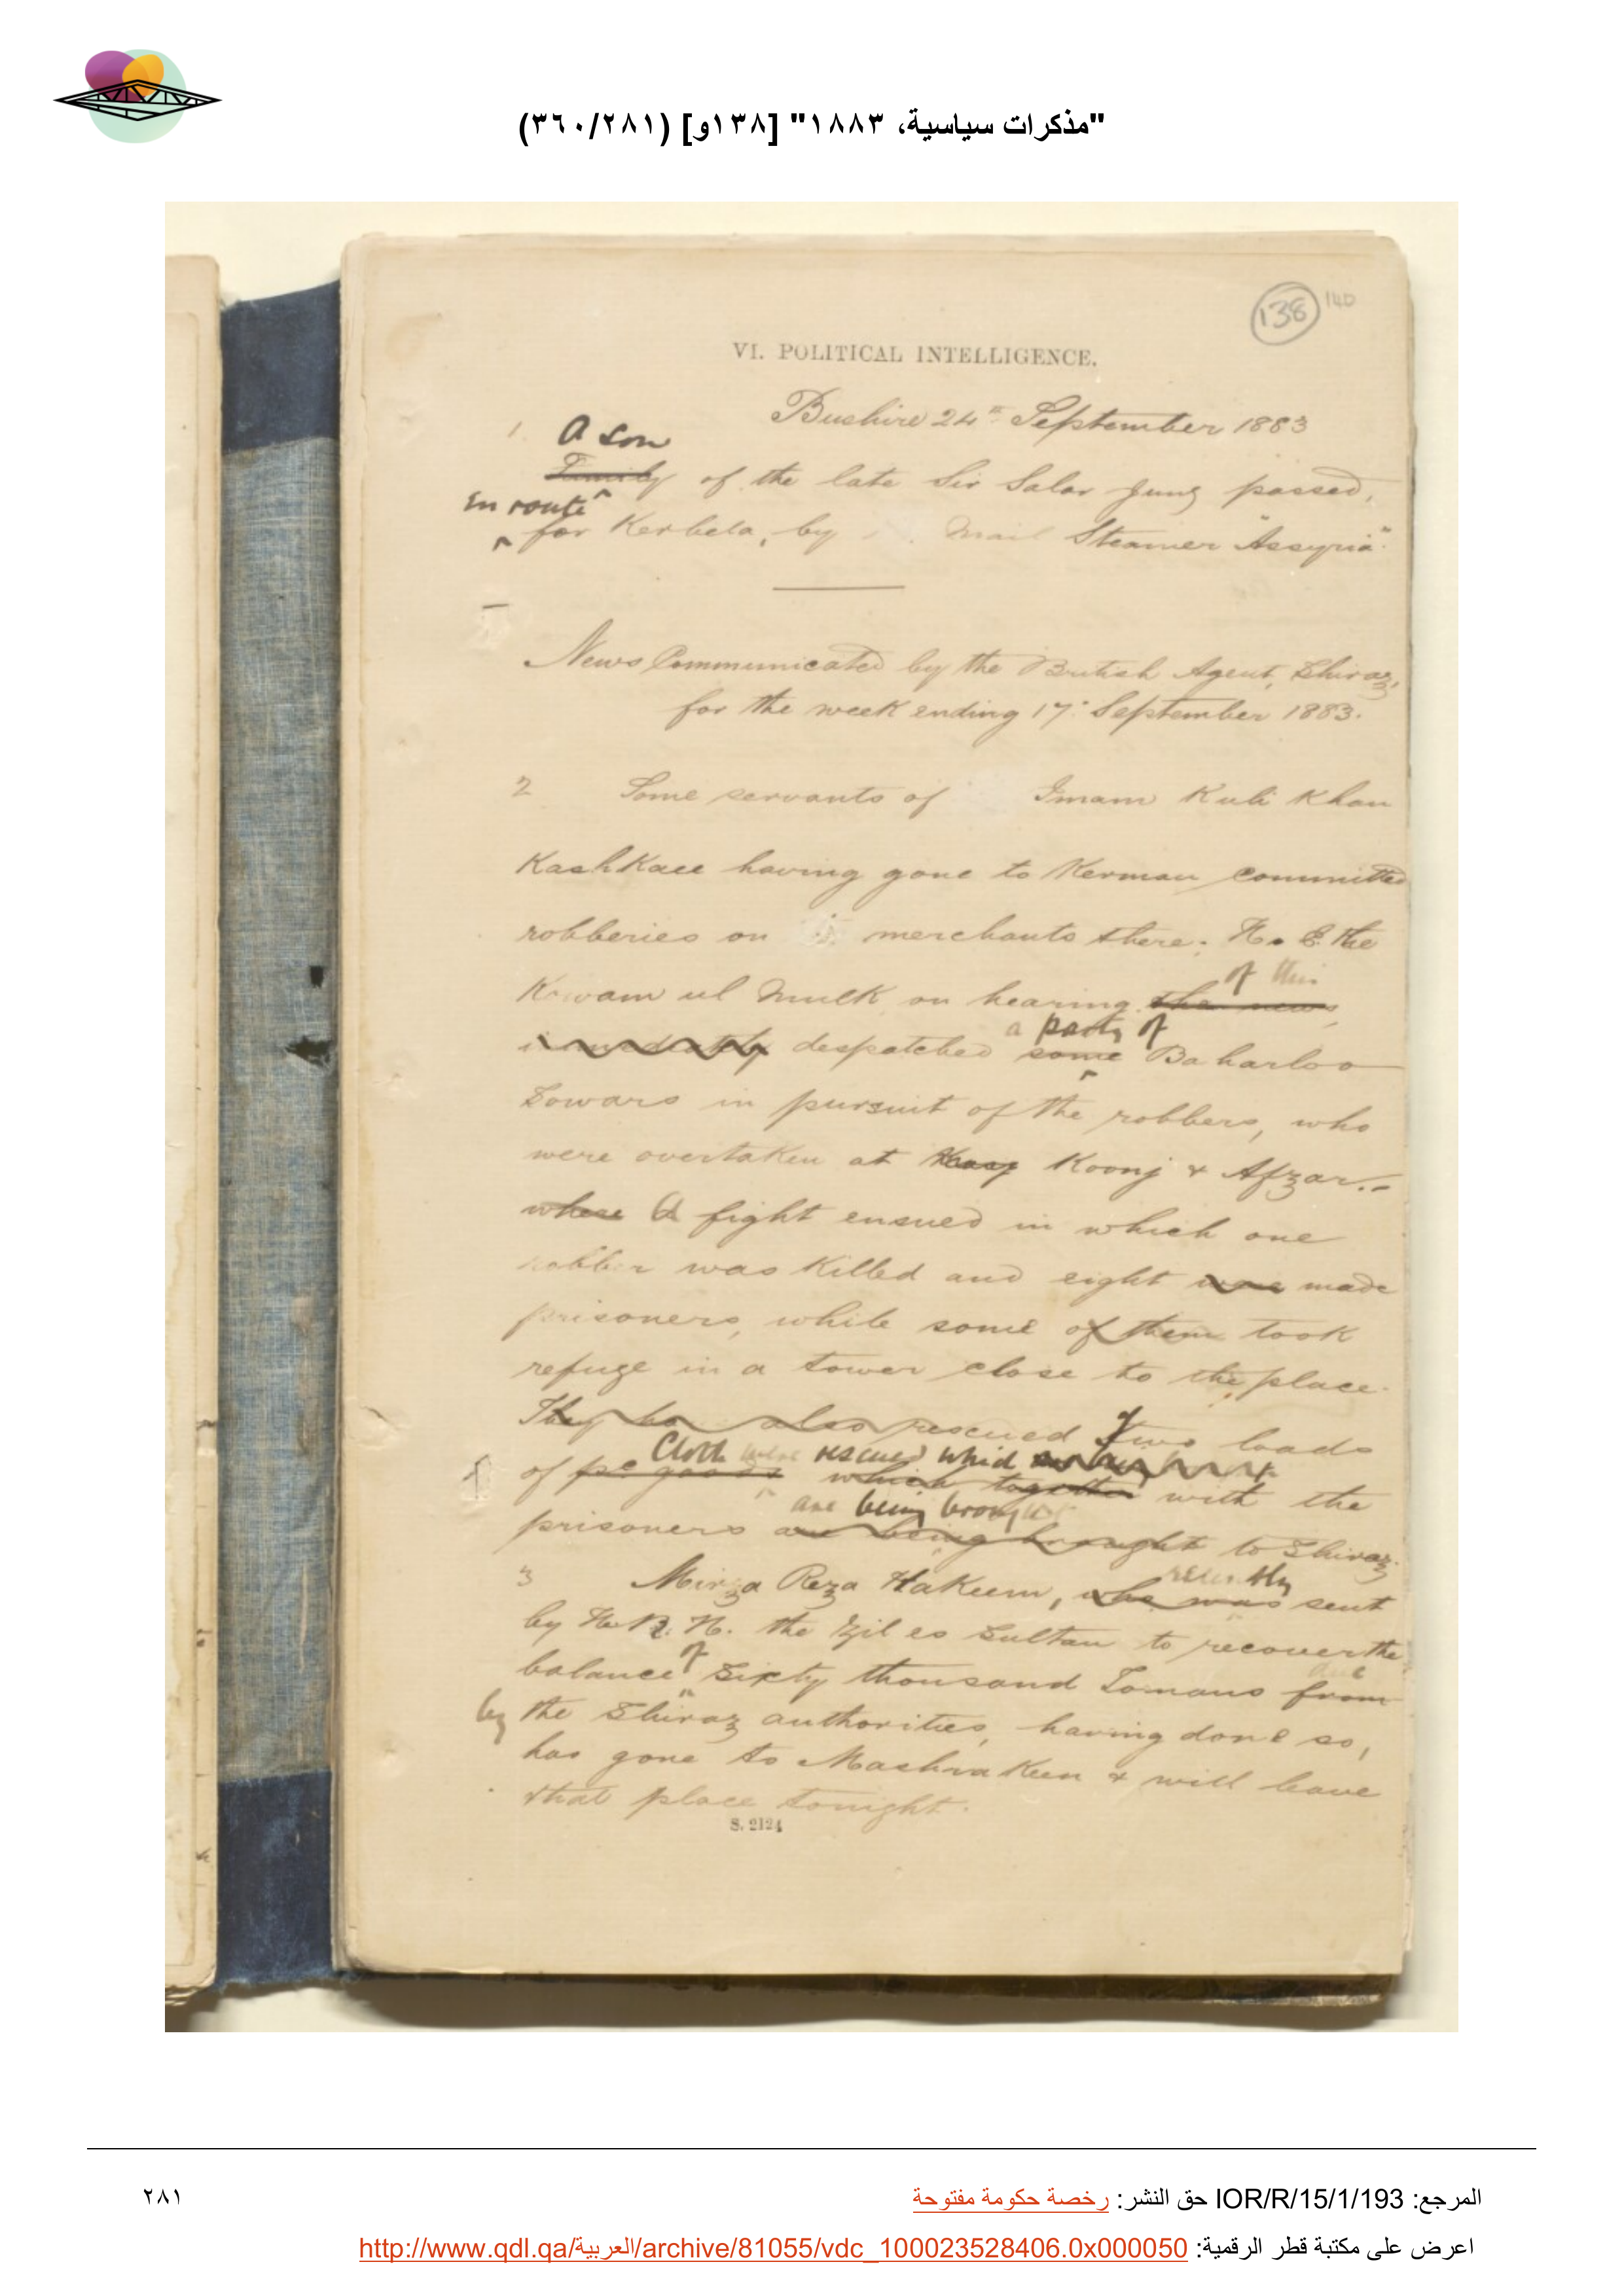 "مذكرات سياسية، ١٨٨٣" [١٣٨و] (٣٦٠/٢٨١)
138 140
VI. POLITICAL INTELLIGENCE.
Bushire 24th September 1883
1. A son
Family of the late Sir Salar Jung passed,
En route
for Kerbela, by Mail Steamer "Assyria".
News Communicated by the British Agent, Shiraz,
for the week ending 17. September 1883.
2 Some servants of Imam Kuli Khan
Kashkaee having gone to Kerman committed
robberies on merchants there. H. E. the
of this
Kowam ul Mulk, on hearing the news,
a party of
immediately despatched some Baharloo
Sowars in pursuit of the robbers, who
were overtaken at Koonj & Afzar.-
where A fight ensued in which one
robber was killed and eight were made
prisoners, while some of them took
refuge in a tower close to the place.
They also rescued Two loads
Cloth were rescued which
of pc goods which together with the
are being brought
prisoners are being brought to Shiraz.
recently
3 Mirza Reza Hakeem, who was sent
by H. R. H. the Zil es Sultan to recover the
of due
balance Sixty thousand Tomans from
by the Shiraz authorities, having done so,
has gone to Mashrakeen & will leave
that place tonight.
S. 2124
المرجع: IOR/R/15/1/193 حق النشر: رخصة حكومة مفتوحة
٢٨١
اعرض على مكتبة قطر الرقمية: http://www.qdl.qa/العربية/archive/81055/vdc_100023528406.0x000050